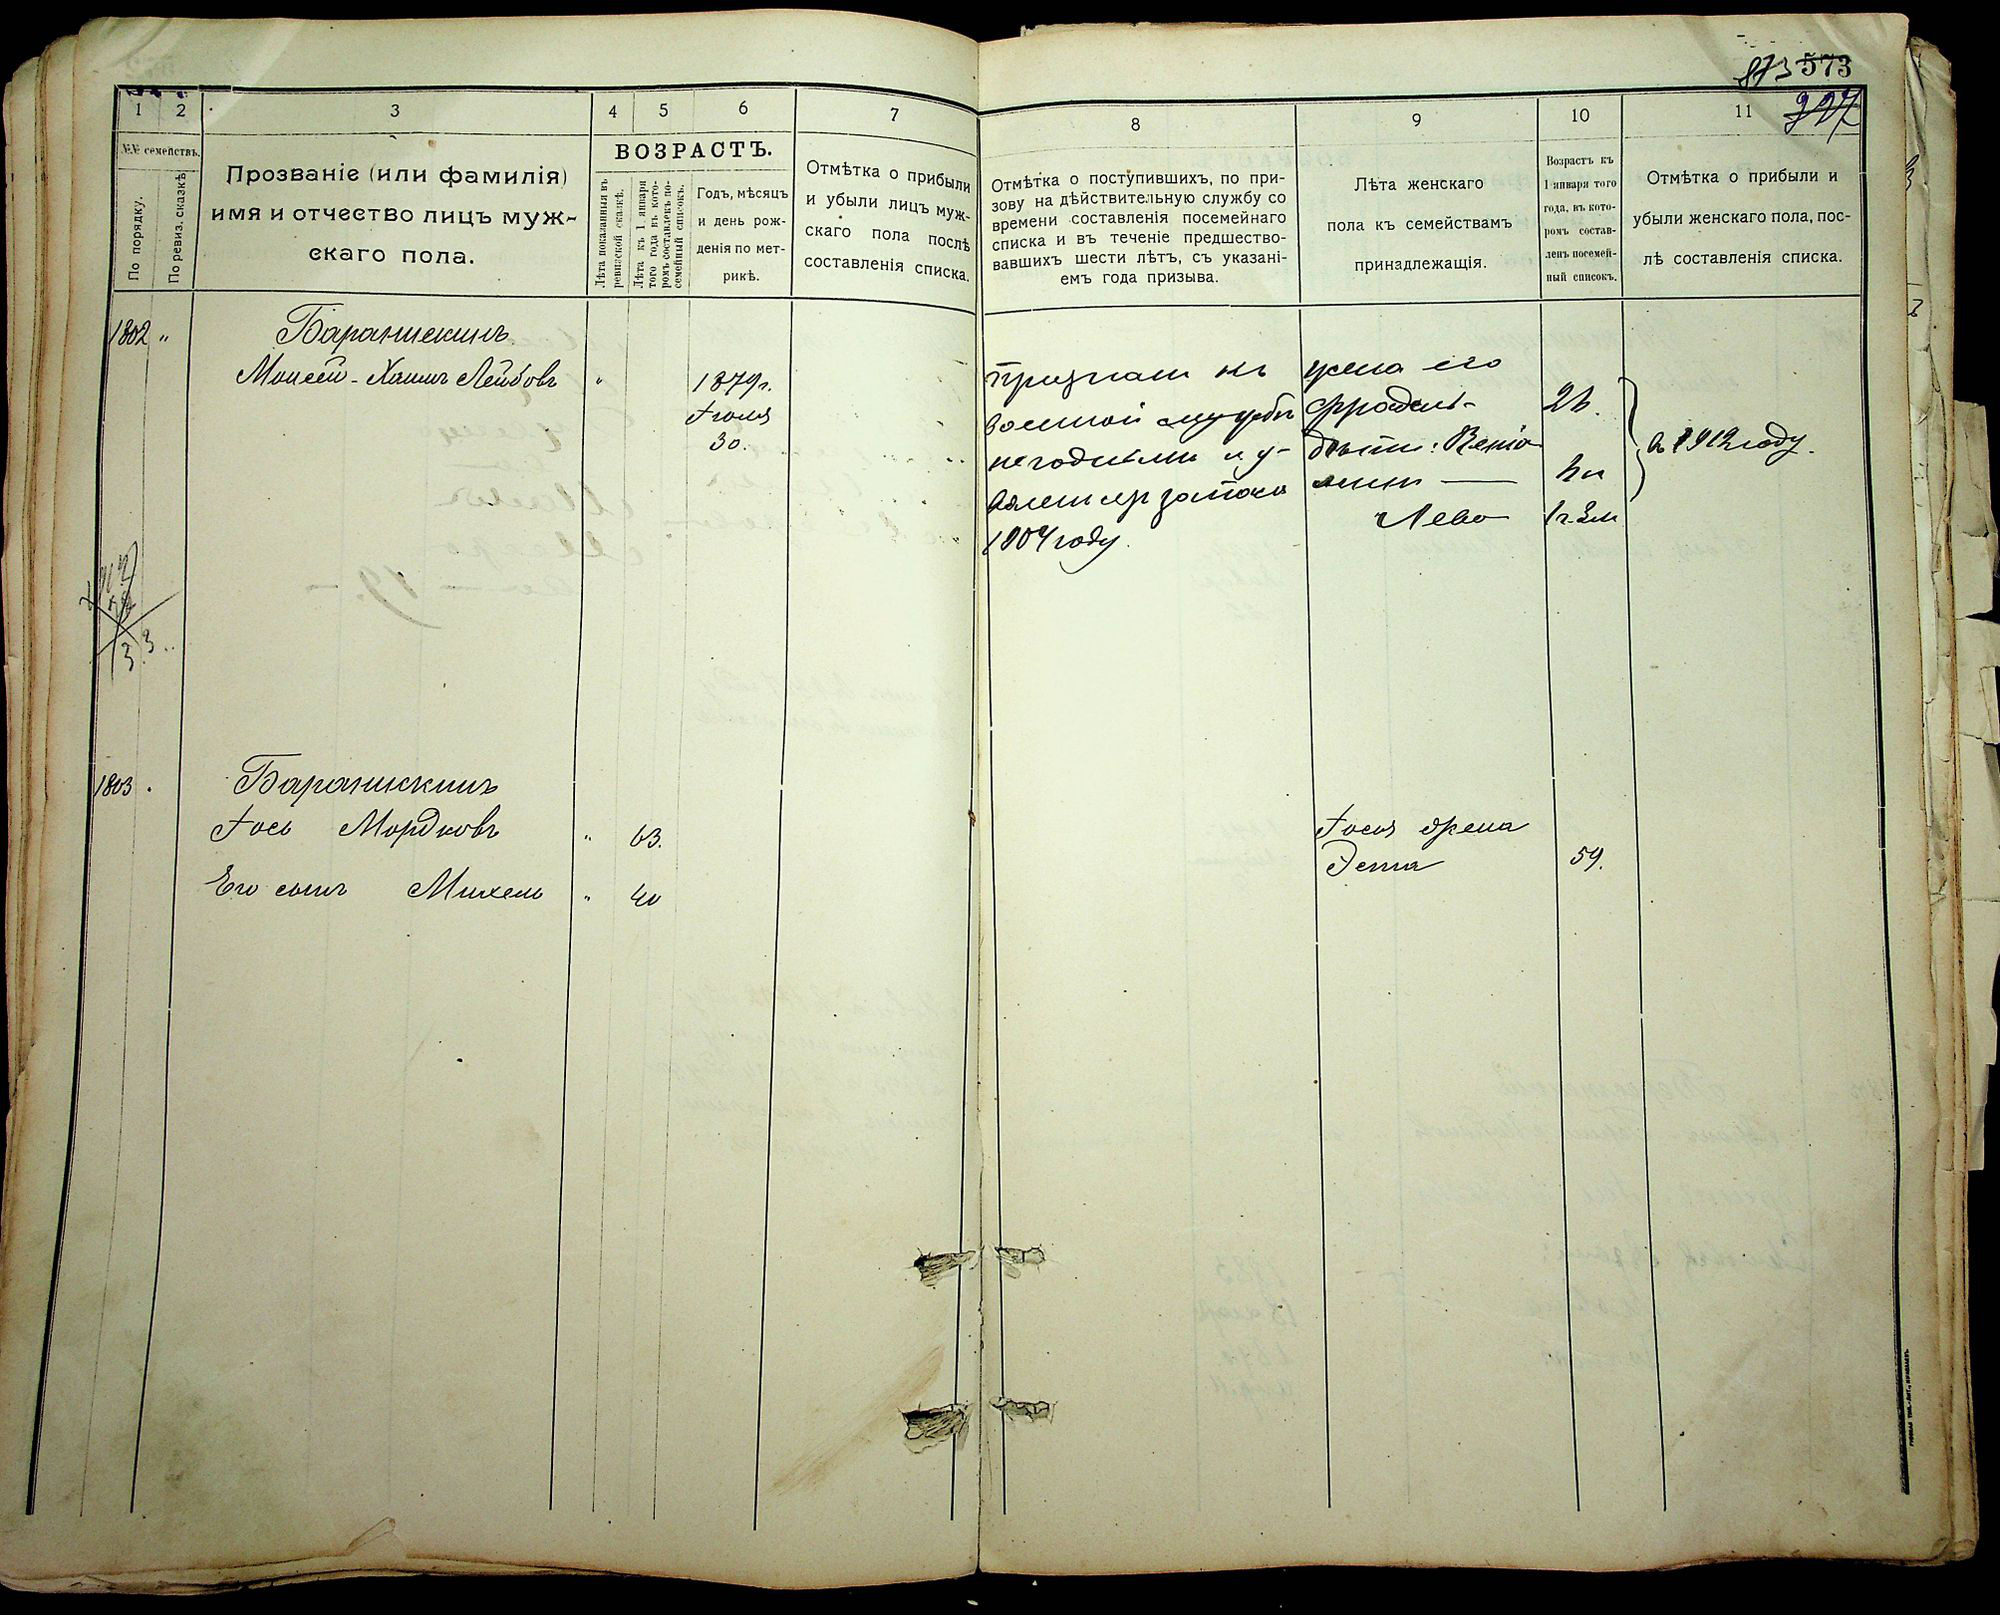 873 573
1
2
3
4
5
6
7
8
9
10
11
№№ семействъ.
По порядку.
По ревиз. сказкѣ
Прозваніе (или фамилія)
имя и отчество лицъ муж-
скаго пола.
ВОЗРАСТЪ.
Лѣта показанныя въ
ревизской сказкѣ.
Лѣта къ 1 января
того года въ кото-
ромъ составленъ по-
семейный списокъ.
Годъ, мѣсяцъ
и день рож-
денія по мет-
рикѣ.
Отмѣтка о прибыли
и убыли лицъ муж-
скаго пола послѣ
составленія списка.
Отмѣтка о поступившихъ, по при-
зову на дѣйствительную службу со
времени составленія посемейнаго
списка и въ теченіе предшество-
вавшихъ шести лѣтъ, съ указані-
емъ года призыва.
Лѣта женскаго
пола къ семействамъ
принадлежащія.
Возрастъ къ
1 января того
года, въ кото-
ромъ состав-
ленъ посемей-
ный списокъ.
Отмѣтка о прибыли и
убыли женскаго пола, пос-
лѣ составленія списка.
1802 "
Баранчскинъ
Моисей-Хаимъ Лейбовъ "
1879 г.
Іюля
30.
Признанъ къ
военной службѣ
негоднымъ и у-
1904 году.
жена его
Фрадель-
дѣти: Венiа-
минъ —
Лева
въ 1912 году.
1803.
Баранчскинъ
Іось Мордковъ " 63.
Его сынъ Михель " 40
Іося жена
Эста 59.